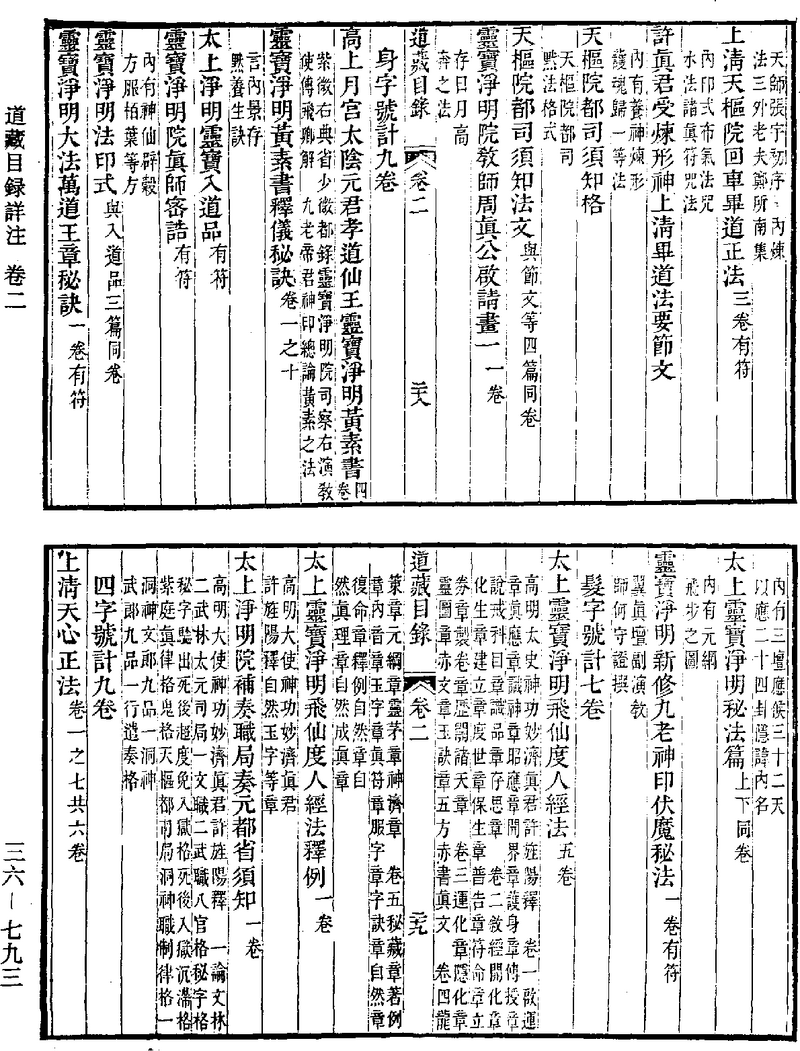 天師張宇初序 內煉
法三外老夫鄭所南集
上清天樞院回車畢道正法三卷有符
內印式布氣法咒
水法諸真符咒法
許真君受煉形神上清畢道法要節文
內有養神煉形
護魂歸一等法
天樞院都司須知格
天樞院都司
黙法格式
天樞院都司須知法文與節文等四篇同卷
靈寶淨明院敎師周真公啟請畫一一卷
存日月高
奔之法
道藏目錄 卷二 二十八
身字號計九卷
高上月宮太陰元君孝道仙王靈寶淨明黃素書四卷
紫微右典省少微都錄靈寶淨明院司察右演敎
使傅飛卿解 九老帝君神印總論黃素之法
靈寶淨明黃素書釋儀秘訣卷一之十
言內景存
黙養生訣
太上淨明靈寶入道品有符
靈寶淨明院真師密誥有符
內有神仙辟穀
方服柏葉等方
靈寶淨明法印式與入道品三篇同卷
靈寶淨明大法萬道王章秘訣一卷有符
內有三壇應候三十二天
以應二十四卦隱諱內名
太上靈寶淨明秘法篇上下同卷
內有元綱
飛步之圖
靈寶淨明新修九老神印伏魔秘法一卷有符
翼真壇副演敎
師何守證撰
髮字號計七卷
太上靈寶淨明飛仙度人經法五卷
高明太史神功妙濟真君許旌陽釋 卷一啟運
章真應章識神章昭應章開界章護身章傳授章
說戒科目章識品章存思章 卷二敘經開化章
化生章建立章度世章保生章普告章符命章立
券章製卷章歷關諸天章 卷三運化章隱化章
靈圖章赤文章玉訣章五方赤書真文 卷四龍
道藏目錄 卷二 二十九
策章元綱章靈孝章神濟章 卷五秘藏章著例
章內音章玉字章真符章服字章字訣章自然章
復命章釋例自然章自
然真理章自然成真章
太上靈寶淨明飛仙度人經法釋例一卷
高明大使神功妙濟真君
許旌陽釋自然玉字等章
太上淨明院補奏職局奏元都省須知一卷
高明大使神功妙濟真君許旌陽釋 一論文林
二武林太元司局一文職二武職八官格秘字格
秘字驗出死後超度免入獄格死後入獄沉滯格
紫庭真律格鬼格天樞都司局洞神職制律格一
洞神文郎九品一洞神
武郎九品一行遣奏格
四字號計九卷
上清天心正法卷一之七共六卷
道藏目錄詳注 卷二
三六－七九三